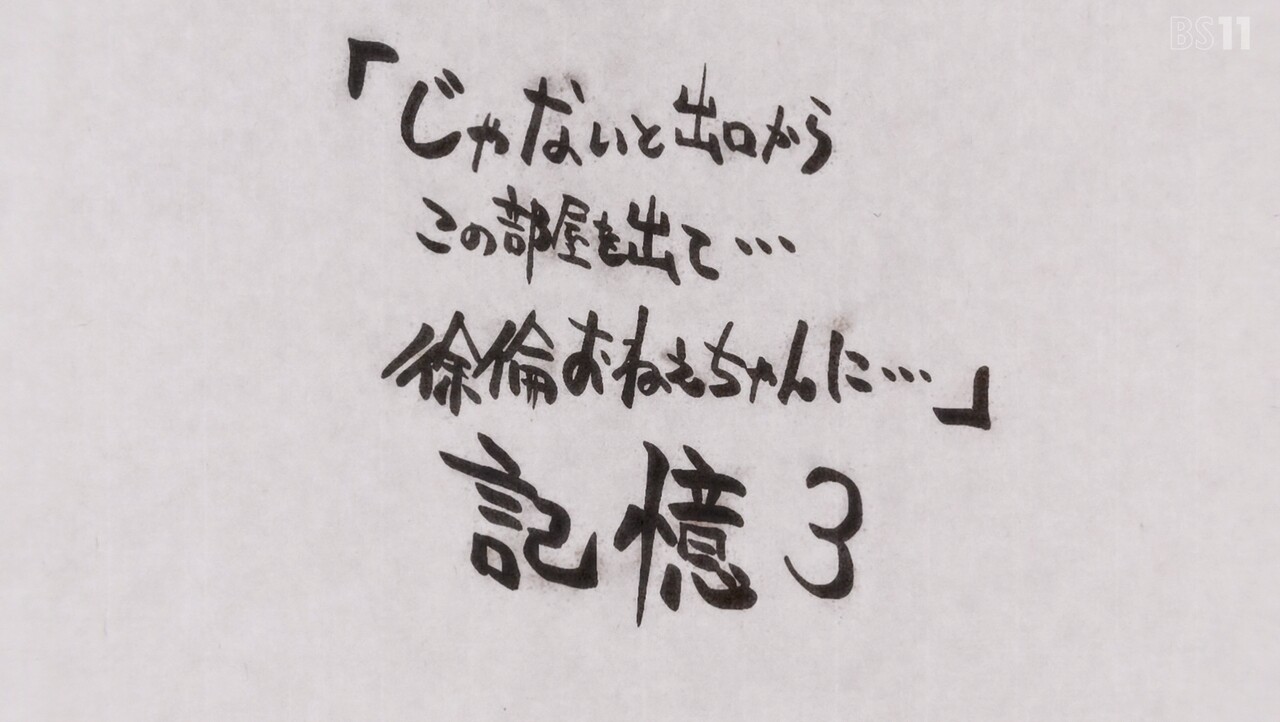 BS11
「じゃないと出口から
この部屋を出て…
徐倫おねえちゃんに…」
記憶3